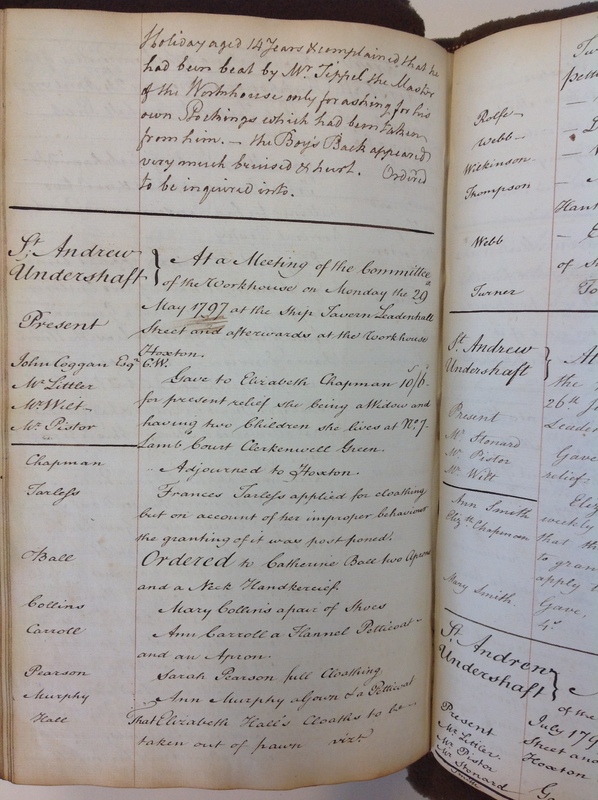 Holiday aged 14 Years & complained that he
had been beat by Mr Tippel the Master
of the Workhouse only for asking for his
own Stockings which had been taken
from him. — the Boy's Back appeared
very much bruised & hurt. Ordered
to be inquired into.
St. Andrew
Undershaft
At a Meeting of the Committee
of the Workhouse on Monday the 29
May 1797 at the Ship Tavern Leadenhall
Street and afterwards at the Workhouse
Hoxton.
Present
John Coggan Esqr C.W.
Mr Littler
Mr Wilt
Mr Pistor
Gave to Elizabeth Chapman 10/6.
for present relief she being a Widow and
having two Children she lives at No. 7.
Lamb Court Clerkenwell Green.
Chapman
Adjourned to Hoxton.
Tarless Frances Tarless applied for cloathing
but on account of her improper behaviour
the granting of it was postponed.
Ball Ordered to Catherine Ball two Aprons
and a Neck Handkercief.
Collins Mary Collins a pair of Shoes
Carroll Ann Carroll a Flannel Petticoat
and an Apron.
Pearson Sarah Pearson full Cloathing
Murphy Ann Murphy a Gown & a Petticoat
Hall That Elizabeth Hall's Cloaths to be
taken out of pawn vizt.
Rolfe
Webb
Wilkinson
Thompson
Webb
of
Turner
St. Andrew
Undershaft
At
the
26th
Present
Mr Stonard
Mr Pistor
Mr Wilt
Gave
relief
Ann Smith
Elizth Chapman
weekly
that
to
apply
Mary Smith Gave,
St. Andrew
Undershaft
of the
Present July 179
Mr Littler Street and
Mr Pistor Hoxton
Mr Stonard